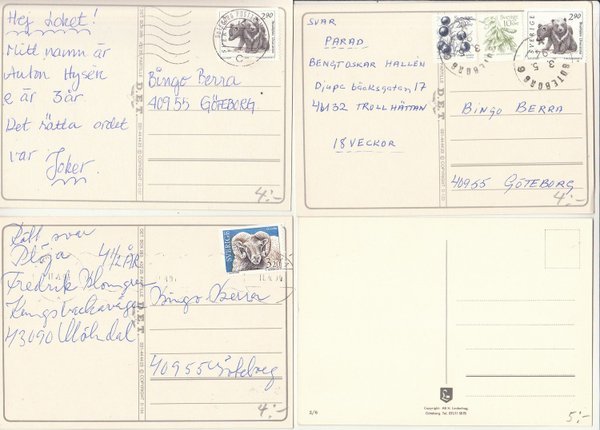 Hej Loket!
Mitt namn är
Anton Hysén
e är 3 år.
Det rätta ordet
var Joker.
GÖTEBORG
SVERIGE 2,90
Bingo Berra
40955 GÖTEBORG
DET
4:-
SVAR
PARAD
BENGT OSKAR HALLÉN
Djupa bäcksgatan 17
46132 TROLLHÄTTAN
18 VECKOR
Sverige 10 öre
SVERIGE 2,90
GÖTEBORG
BINGO BERRA
40955 GÖTEBORG
DET
4:-
Rätt svar
Plöja 4 1/2 ÅR
Fredrik Blomgren
Kungsbackavägen
43090 Mölndal
SVERIGE 3,20
Bingo Berra
40955 Göteborg
DET
4:-
2/6
Göteborg Tel.
5:-